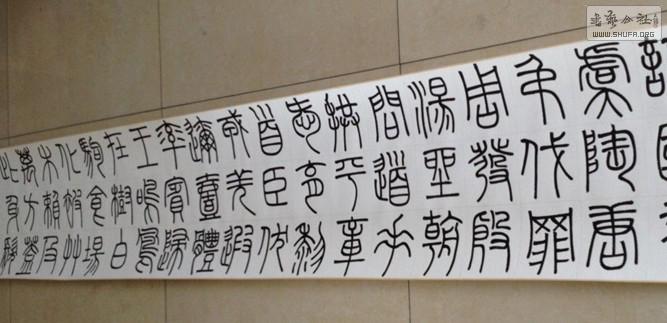 虞陶唐
弔伐罪
周發殷
湯坐朝
問道垂
拱平章
愛育黎
首臣伏
戎羌遐
邇壹體
率賓歸
王鳴鳳
在樹白
駒食場
化被艸
木賴及
萬方蓋
此身髮
书法公社
WWW.SHUFA.ORG